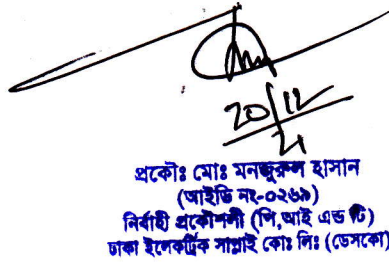 20/12
21
প্রকৌঃ মোঃ মনজুরুল হাসান
(আইডি নং-০২৬৯)
নির্বাহী প্রকৌশলী (পি,আই এন্ড টি)
ঢাকা ইলেকট্রিক সাপ্লাই কোঃ লিঃ (ডেসকো)